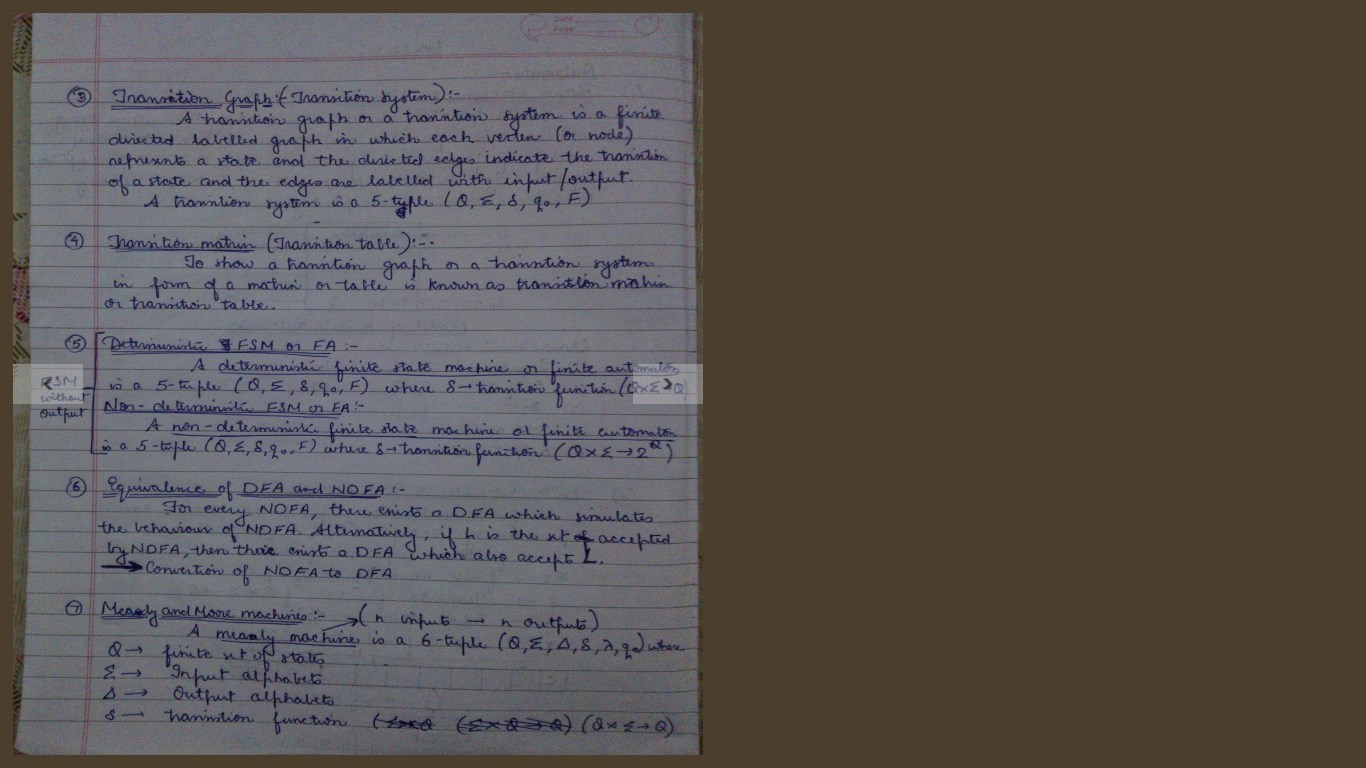 Date
Page
③ Transition Graph:- (Transition system):-
A transition graph or a transition system is a finite
directed labelled graph in which each vertex (or node)
represents a state and the directed edges indicate the transition
of a state and the edges are labelled with input/output.
A transition system is a 5-tuple (Q, Σ, δ, q₀, F)
④ Transition matrix (Transition table):--
To show a transition graph or a transition system
in form of a matrix or table is known as transition matrix
or transition table.
⑤ Deterministic FSM or FA :-
A deterministic finite state machine or finite automaton
is a 5-tuple (Q, Σ, δ, q₀, F) where δ→ transition function (Q×Σ→Q)
FSM without output
Non-deterministic FSM or FA:-
A non-deterministic finite state machine or finite automaton
is a 5-tuple (Q, Σ, δ, q₀, F) where δ→ transition function (Q×Σ→2^Q)
⑥ Equivalence of DFA and NDFA :-
For every NDFA, there exists a DFA which simulates
the behaviour of NDFA. Alternatively, if L is the set of accepted
by NDFA, then there exists a DFA which also accepts L.
→ Convertion of NDFA to DFA
⑦ Mealy and Moore machines :- → (n inputs → n outputs)
A mealy machine is a 6-tuple (Q, Σ, Δ, δ, λ, q₀) where
Q → finite set of states
Σ → Input alphabets
Δ → Output alphabets
δ → transition function (Σ×Q (Σ×Q→Q) (Q×Σ→Q)